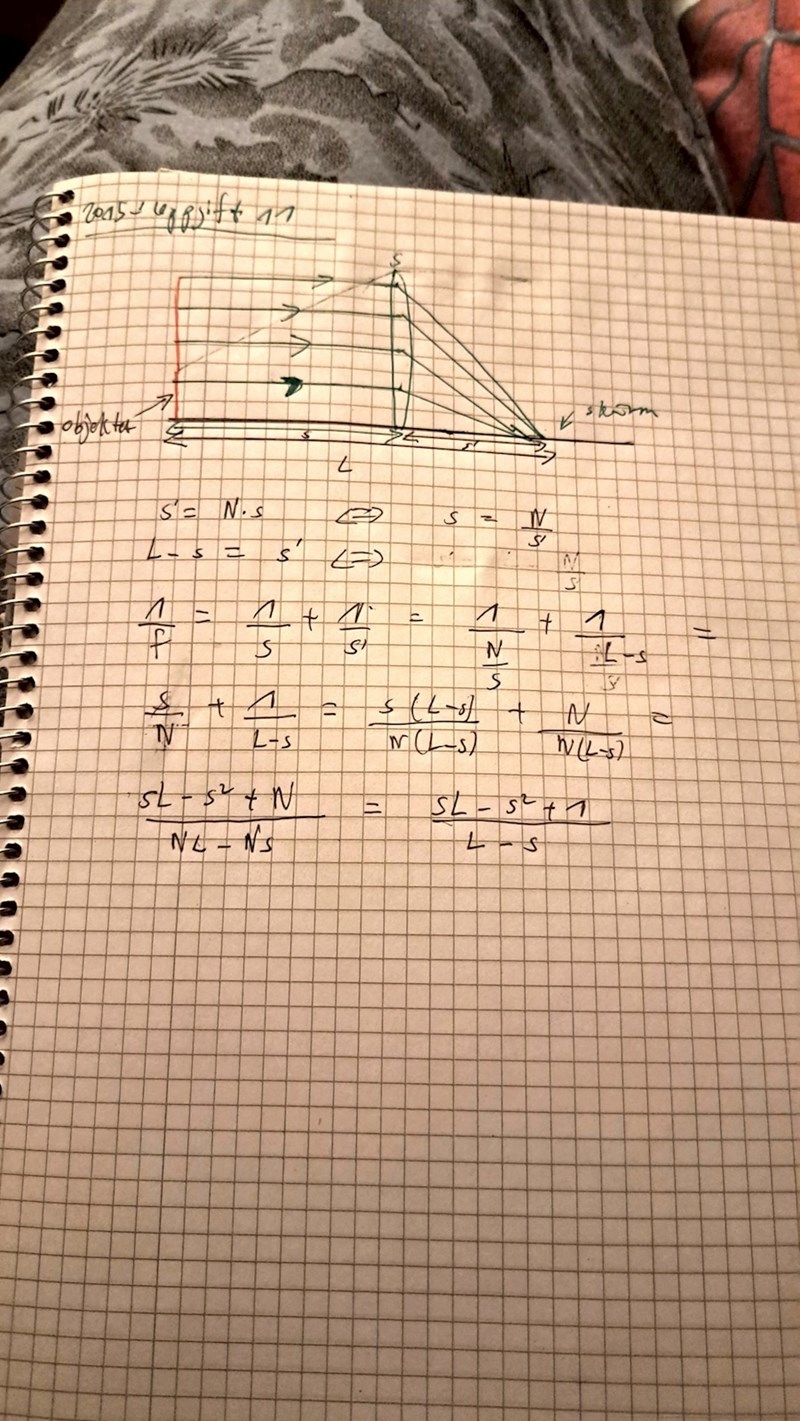 2015 - uppgift 11
S
objektet
skärm
s
s'
L
s' = N·s ⇔ s = N/s'
L - s = s' ⇔ N/s
1/f = 1/s + 1/s' = 1/(N/s) + 1/(L-s) =
s/N + 1/(L-s) = s(L-s)/N(L-s) + N/N(L-s) =
(sL - s² + N)/(NL - Ns) = (sL - s² + 1)/(L - s)